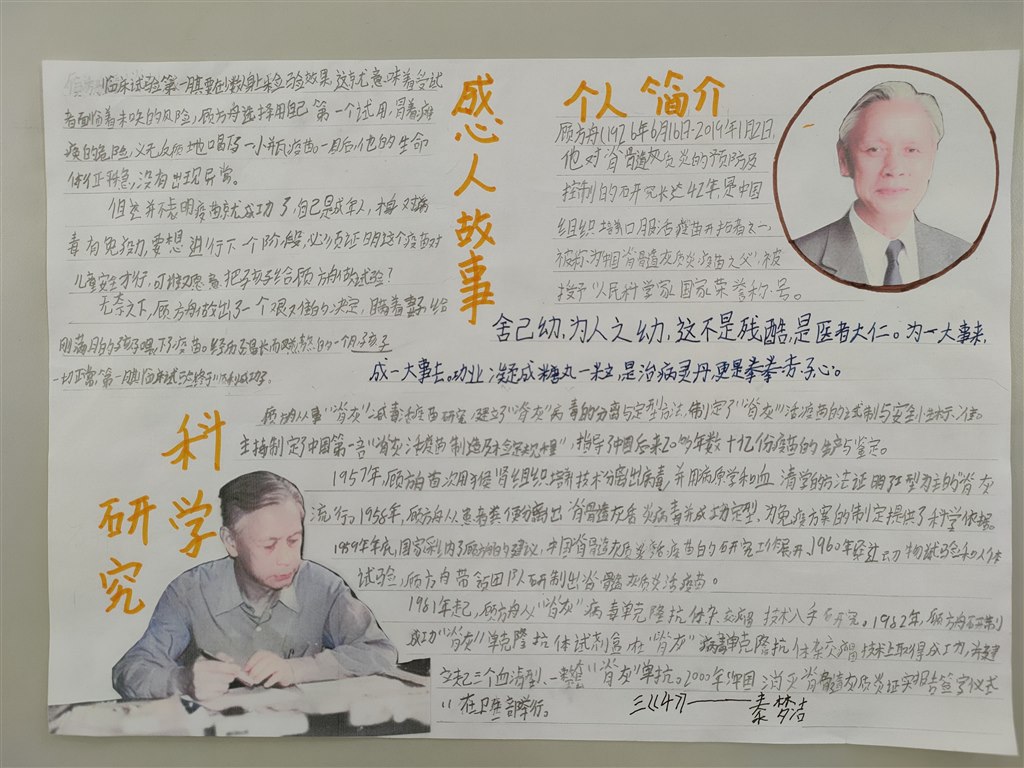 感心人故事
临床试验第一期要在少数人身上检验效果,这就意味着受试
者面临着未知的风险,顾方舟选择用自己第一个试用,冒着瘫
痪的危险,义无反顾地喝了一小瓶疫苗。一周后,他的生命
体征平稳,没有出现异常。
但这并不表明疫苗就成功了,自己是成年人,本身对病
毒有免疫力,要想进行下一个阶段,必须证明这个疫苗对
儿童安全才行,可谁愿意把孩子给顾方舟做试验?
无奈之下,顾方舟做出了一个艰难的决定,瞒着妻子,给
刚满月的孩子喂下了疫苗。经历了漫长而煎熬的一个月,孩子
一切正常,第一期临床试验终于顺利成功了。
个人简介
顾方舟1926年6月16日-2019年1月2日,
他对脊髓灰质炎的预防及
控制的研究长达42年,是中国
组织培养口服活疫苗开拓者之一,
被称为“中国脊髓灰质炎疫苗之父”,被
授予“人民科学家”国家荣誉称号。
舍己幼,为人之幼,这不是残酷,是医者大仁。为一大事来,
成一大事去。功业凝成糖丸一粒,是治病灵丹,更是拳拳赤子心。
科学
研究
顾方舟从事“脊灰”减毒活疫苗研究,建立了“脊灰”病毒的分离与定型方法,制定了“脊灰”活疫苗的试制与安全性标准。
主持制定了中国第一部“脊灰活疫苗制造及检定规程”,指导了中国后来20多年数十亿份疫苗的生产与鉴定。
1957年,顾方舟首次用猴肾组织培养技术分离出病毒,并用病原学和血清学的方法证明Ⅰ型为主的“脊灰
流行。1958年,顾方舟从患者粪便分离出脊髓灰质炎病毒并成功定型,为免疫方案的制定提供了科学依据。
1959年年底,国家采纳了顾方舟的建议,中国脊髓灰质炎活疫苗的研究工作展开,1960年经过动物试验和人体
试验,顾方舟带领团队研制出脊髓灰质炎活疫苗。
1981年起,顾方舟从“脊灰”病毒单克隆抗体杂交瘤技术入手研究。1982年,顾方舟研制
成功“脊灰”单克隆抗体试剂盒在“脊灰”病毒单克隆抗体杂交瘤技术上取得成功,并建
立起三个血清型、一整套“脊灰”单抗。2000年“中国消灭脊髓灰质炎证实报告签字仪式
”在卫生部举行。
三(4)——秦梦洁